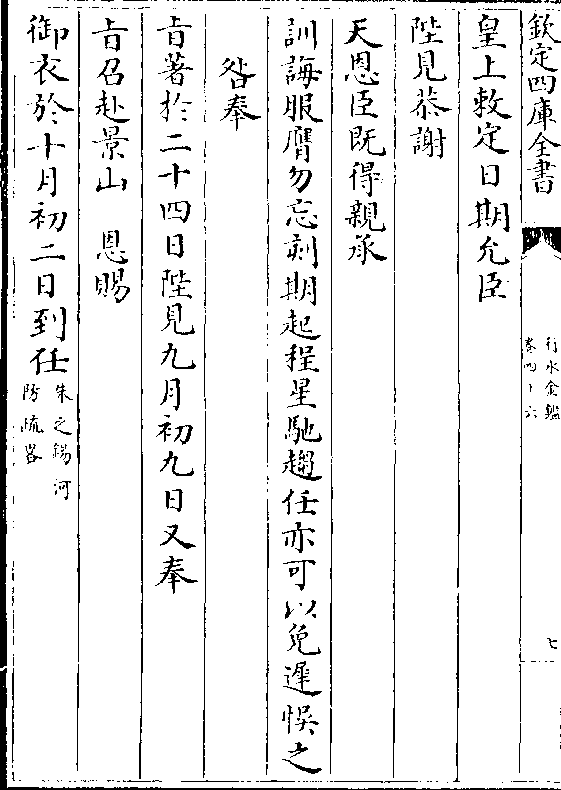 欽定四庫全書
行水金鑑
卷四十六
七
皇上敕定日期允臣
陛見恭謝
天恩臣既得親承
訓誨服膺勿忘刻期起程星馳趨任亦可以免遲悞之
咎奉
㫖著於二十四日陛見九月初九日又奉
㫖召赴景山 恩賜
御衣於十月初二日到任
朱之錫河
防疏畧